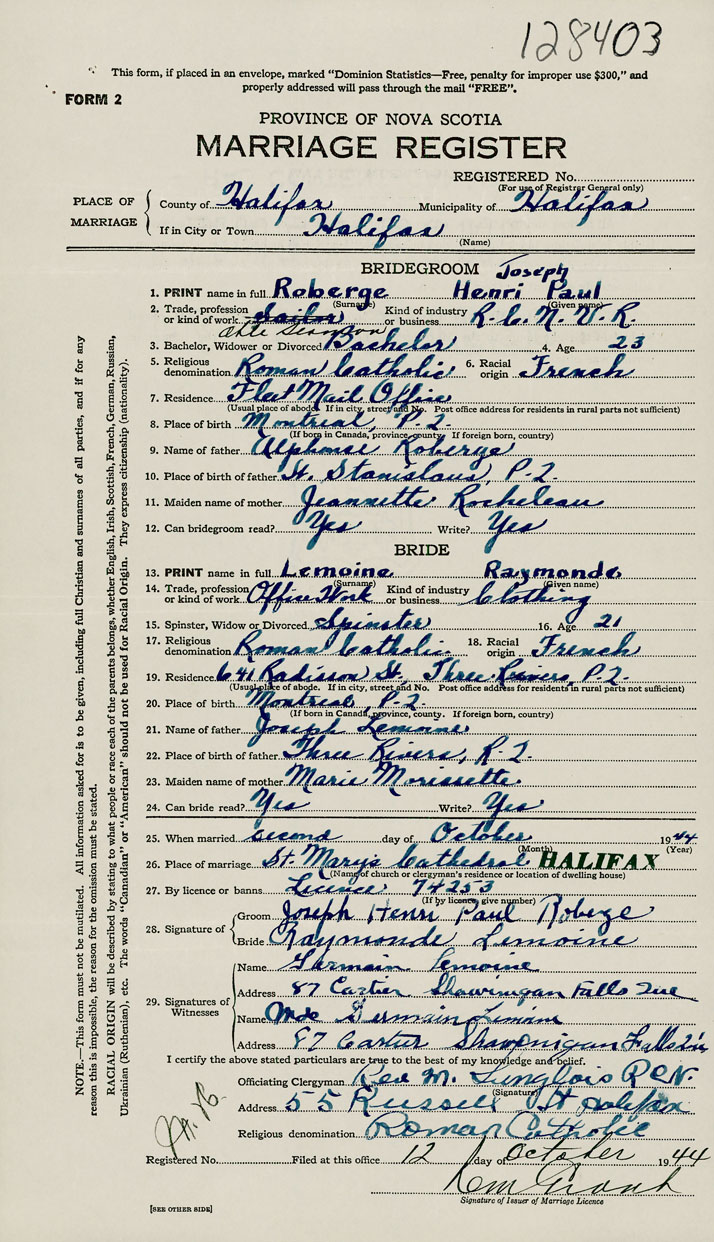 128403
This form, if placed in an envelope, marked "Dominion Statistics—Free, penalty for improper use $300," and
properly addressed will pass through the mail "FREE".
FORM 2
PROVINCE OF NOVA SCOTIA
MARRIAGE REGISTER
REGISTERED No.
(For use of Registrar General only)
PLACE OF MARRIAGE
County of Halifax Municipality of Halifax
If in City or Town Halifax
(Name)
BRIDEGROOM Joseph
1. PRINT name in full Roberge Henri Paul
(Surname) (Given name)
2. Trade, profession or kind of work Sailor Able Seaman Kind of industry or business R.C.N.V.R.
3. Bachelor, Widower or Divorced Bachelor 4. Age 23
5. Religious denomination Roman Catholic 6. Racial origin French
7. Residence Fleet Mail Office
(Usual place of abode. If in city, street and No. Post office address for residents in rural parts not sufficient)
8. Place of birth Montreal, P.Q.
(If born in Canada, province, county. If foreign born, country)
9. Name of father Alphonse Roberge
10. Place of birth of father St. Stanislaus, P.Q.
11. Maiden name of mother Jeannette Rocheleau
12. Can bridegroom read? Yes Write? Yes
BRIDE
13. PRINT name in full Lemoine Raymonde
(Surname) (Given name)
14. Trade, profession or kind of work Office Work Kind of industry or business Clothing
15. Spinster, Widow or Divorced Spinster 16. Age 21
17. Religious denomination Roman Catholic 18. Racial origin French
19. Residence 641 Radisson St. Three Rivers, P.Q.
(Usual place of abode. If in city, street and No. Post office address for residents in rural parts not sufficient)
20. Place of birth Montreal, P.Q.
(If born in Canada, province, county. If foreign born, country)
21. Name of father Joseph Lemoine
22. Place of birth of father Three Rivers, P.Q.
23. Maiden name of mother Marie Morissette
24. Can bride read? Yes Write? Yes
25. When married second day of October 1944
(Month) (Year)
26. Place of marriage St. Mary's Cathedral HALIFAX
(Name of church or clergyman's residence or location of dwelling house)
27. By licence or banns Licence 74253
(If by licence, give number)
28. Signature of
Groom Joseph Henri Paul Roberge
Bride Raymonde Lemoine
29. Signatures of Witnesses
Name Germain Lemoine
Address 87 Cartier Shawinigan Falls Que
Name Mde Germain Lemoine
Address 87 Cartier Shawinigan Falls
I certify the above stated particulars are true to the best of my knowledge and belief.
Officiating Clergyman Rev M. Langlois RCN.
(Signature)
Address 55 Russell St Halifax
Religious denomination Roman Catholic
Registered No. Filed at this office 12 day of October 1944
Signature of Issuer of Marriage Licence
[SEE OTHER SIDE]
NOTE.—This form must not be mutilated. All information asked for is to be given, including full Christian and surnames of all parties, and if for any
reason this is impossible, the reason for the omission must be stated.
RACIAL ORIGIN will be described by stating to what people or race each of the parents belongs, whether English, Irish, Scottish, French, German, Russian,
Ukrainian (Ruthenian), etc. The words "Canadian" or "American" should not be used for Racial Origin. They express citizenship (nationality).